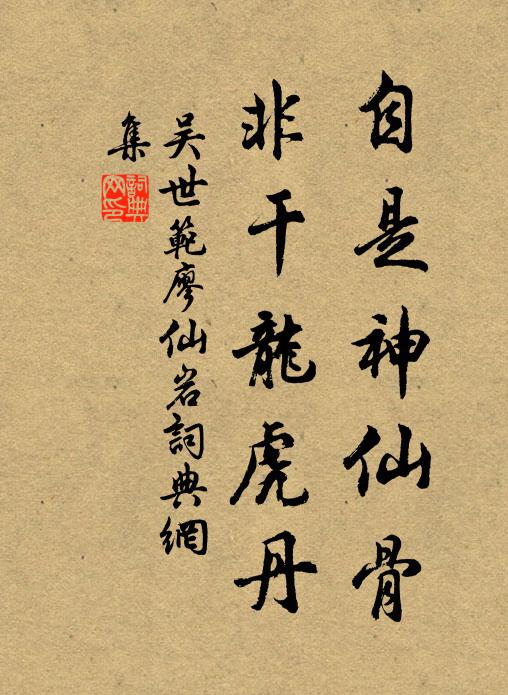 自是神仙骨
非干龍虎丹
吴世範廖仙岩詞典網
集
詞典網印